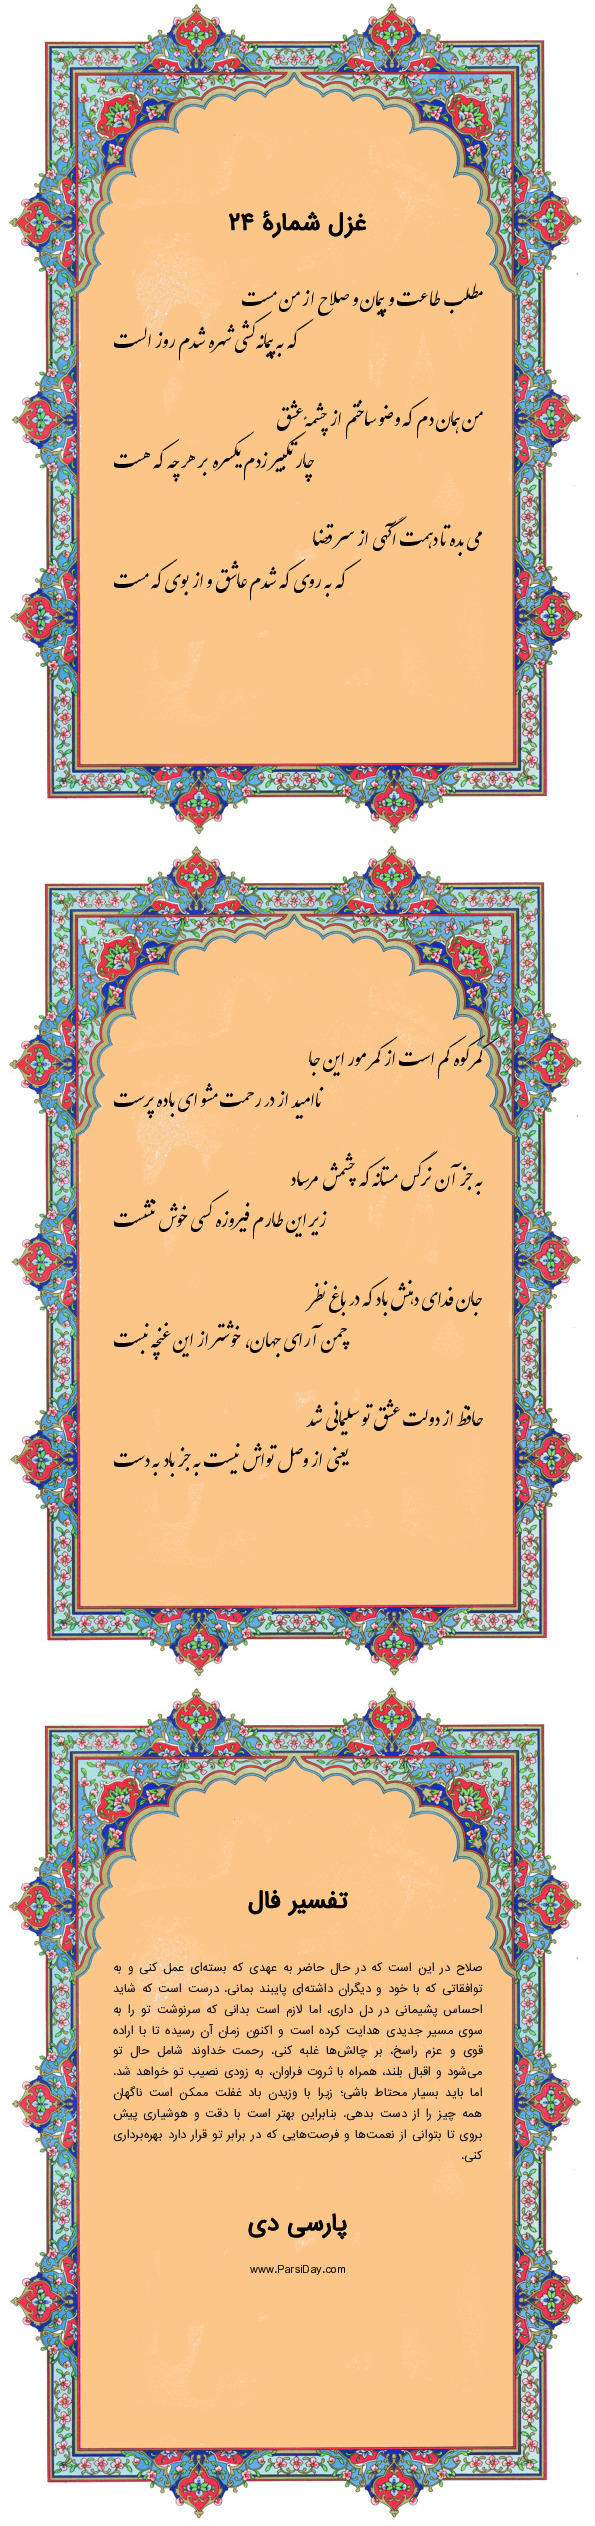 غزل شمارهٔ ۲۴
مطلب طاعت و پیمان و صلاح از من مست
که به پیمانه کشی شهره شدم روز الست
من همان دم که وضو ساختم از چشمهٔ عشق
چار تکبیر زدم یکسره بر هر چه که هست
می بده تا دهمت آگهی از سر قضا
که به روی که شدم عاشق و از بوی که مست
کمر کوه کم است از کمر مور این جا
ناامید از در رحمت مشو ای باده پرست
به جز آن نرگس مستانه که چشمش مرساد
زیر این طارم فیروزه کسی خوش ننشست
جان فدای دهنش باد که در باغ نظر
چمن آرای جهان، خوشتر از این غنچه نبست
حافظ از دولت عشق تو سلیمانی شد
یعنی از وصل تواش نیست به جز باد به دست
تفسیر فال
صلاح در این است که در حال حاضر به عهدی که بسته‌ای عمل کنی و به
توافقاتی که با خود و دیگران داشته‌ای پایبند بمانی. درست است که شاید
احساس پشیمانی در دل داری، اما لازم است بدانی که سرنوشت تو را به
سوی مسیر جدیدی هدایت کرده است و اکنون زمان آن رسیده تا با اراده
قوی و عزم راسخ، بر چالش‌ها غلبه کنی. رحمت خداوند شامل حال تو
می‌شود و اقبال بلند، همراه با ثروت فراوان، به زودی نصیب تو خواهد شد.
اما باید بسیار محتاط باشی؛ زیرا با وزیدن باد غفلت ممکن است ناگهان
همه چیز را از دست بدهی. بنابراین بهتر است با دقت و هوشیاری پیش
بروی تا بتوانی از نعمت‌ها و فرصت‌هایی که در برابر تو قرار دارد بهره‌برداری
کنی.
پارسی دی
www.ParsiDay.com